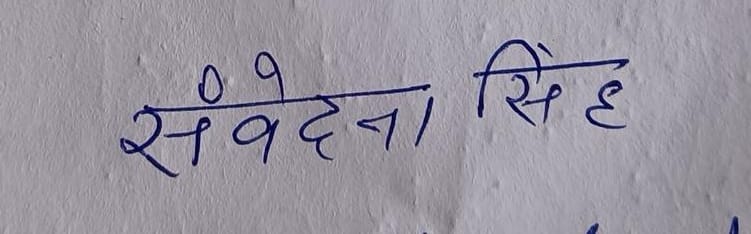 संवेदना सिंह